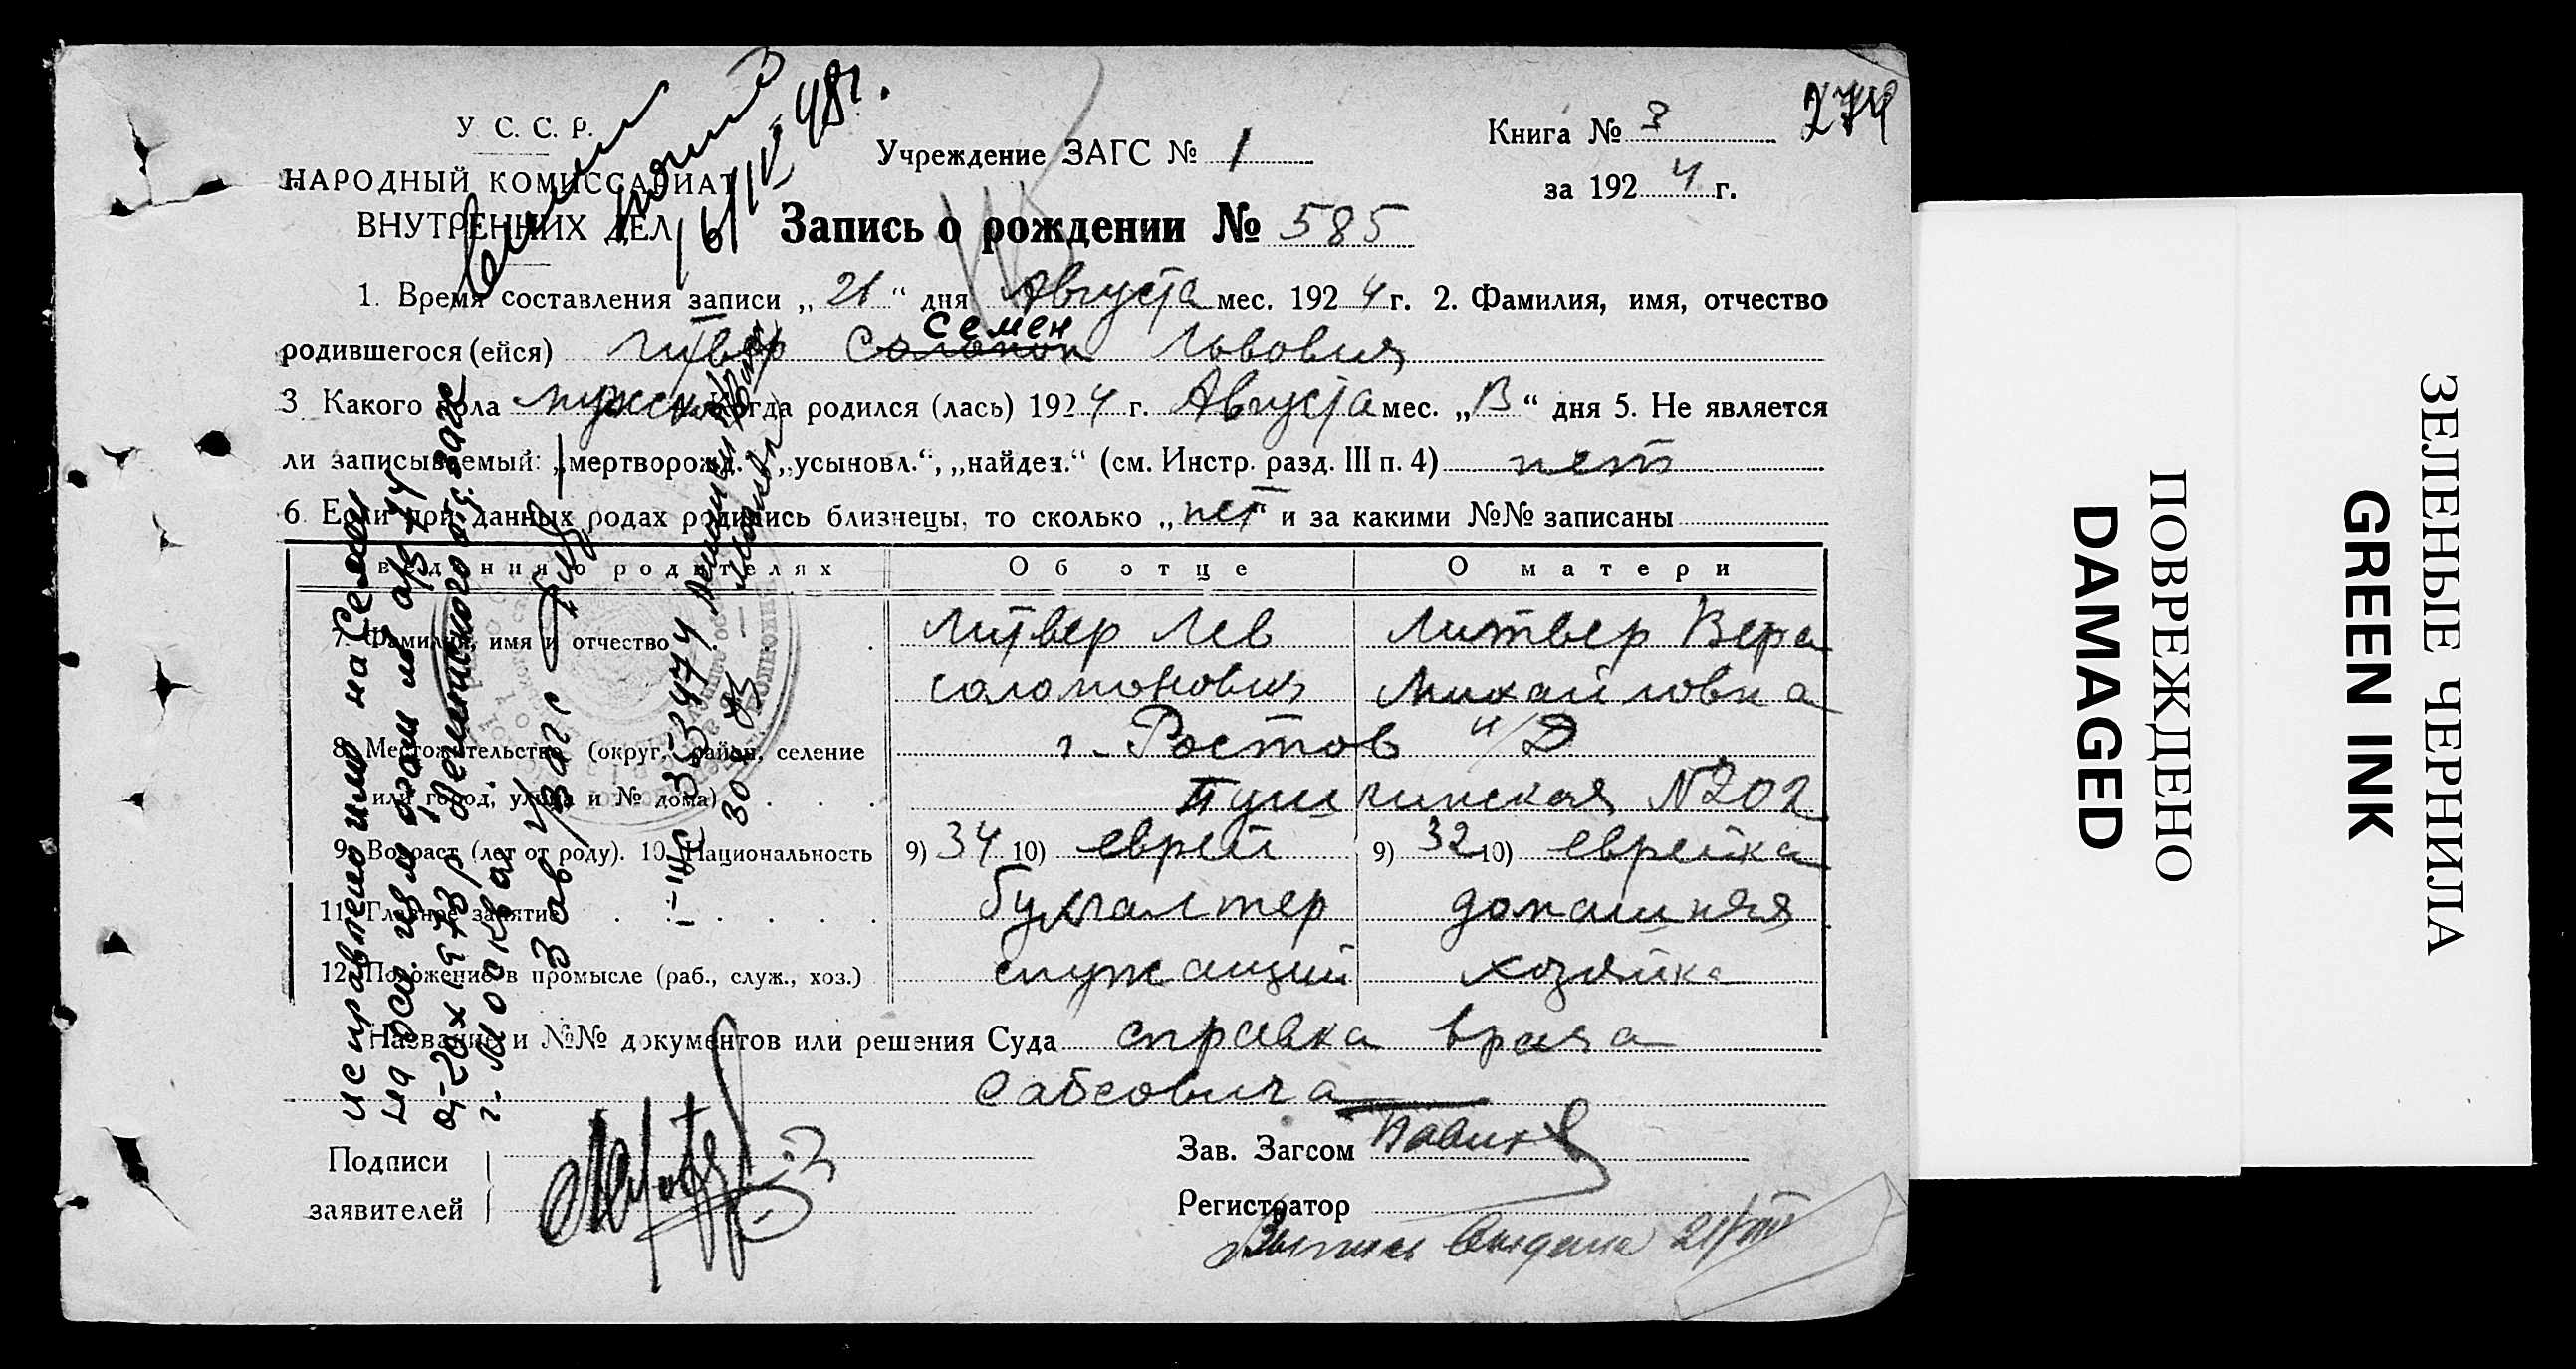 274
У. С. С. Р.
НАРОДНЫЙ КОМИССАРИАТ
ВНУТРЕННИХ ДЕЛ
16/IV-48г.
Учреждение ЗАГС № 1
Книга № 3
за 1924 г.
Запись о рождении № 585
1. Время составления записи „21“ дня Августа мес. 1924 г. 2. Фамилия, имя, отчество
родившегося (ейся) Литвер Соломон Семен Львович
3 Какого пола мужск. 4. Когда родился (лась) 1924 г. Августа мес. „13“ дня 5. Не является
ли записываемый: „мертворожд.“, „усыновл.“, „найден.“ (см. Инстр. разд. III п. 4) нет
6. Если при данных родах родились близнецы, то сколько „нет“ и за какими №№ записаны
Сведения о родителях Об отце О матери
7. Фамилия, имя и отчество Литвер Лев Литвер Вера
Соломонович Михайловна
8. Местожительство (округ, район, селение г. Ростов н/Д
или город, улица и № дома) Пушкинская № 202
9. Возраст (лет от роду). 10. Национальность 9) 34 10) еврей 9) 32 10) еврейка
11. Главное занятие бухгалтер домашняя
12. Положение в промысле (раб., служ., хоз.) служащий хозяйка
Название и №№ документов или решения Суда справка врача
Сабсовича
Подписи
заявителей
Зав. Загсом
Регистратор
Выпись выдана 21/VIII
исправлено имя на Семен
на осн изм
г. Москва
Зав. / Загс
ПОВРЕЖДЕНО
DAMAGED
ЗЕЛЕНЫЕ ЧЕРНИЛА
GREEN INK